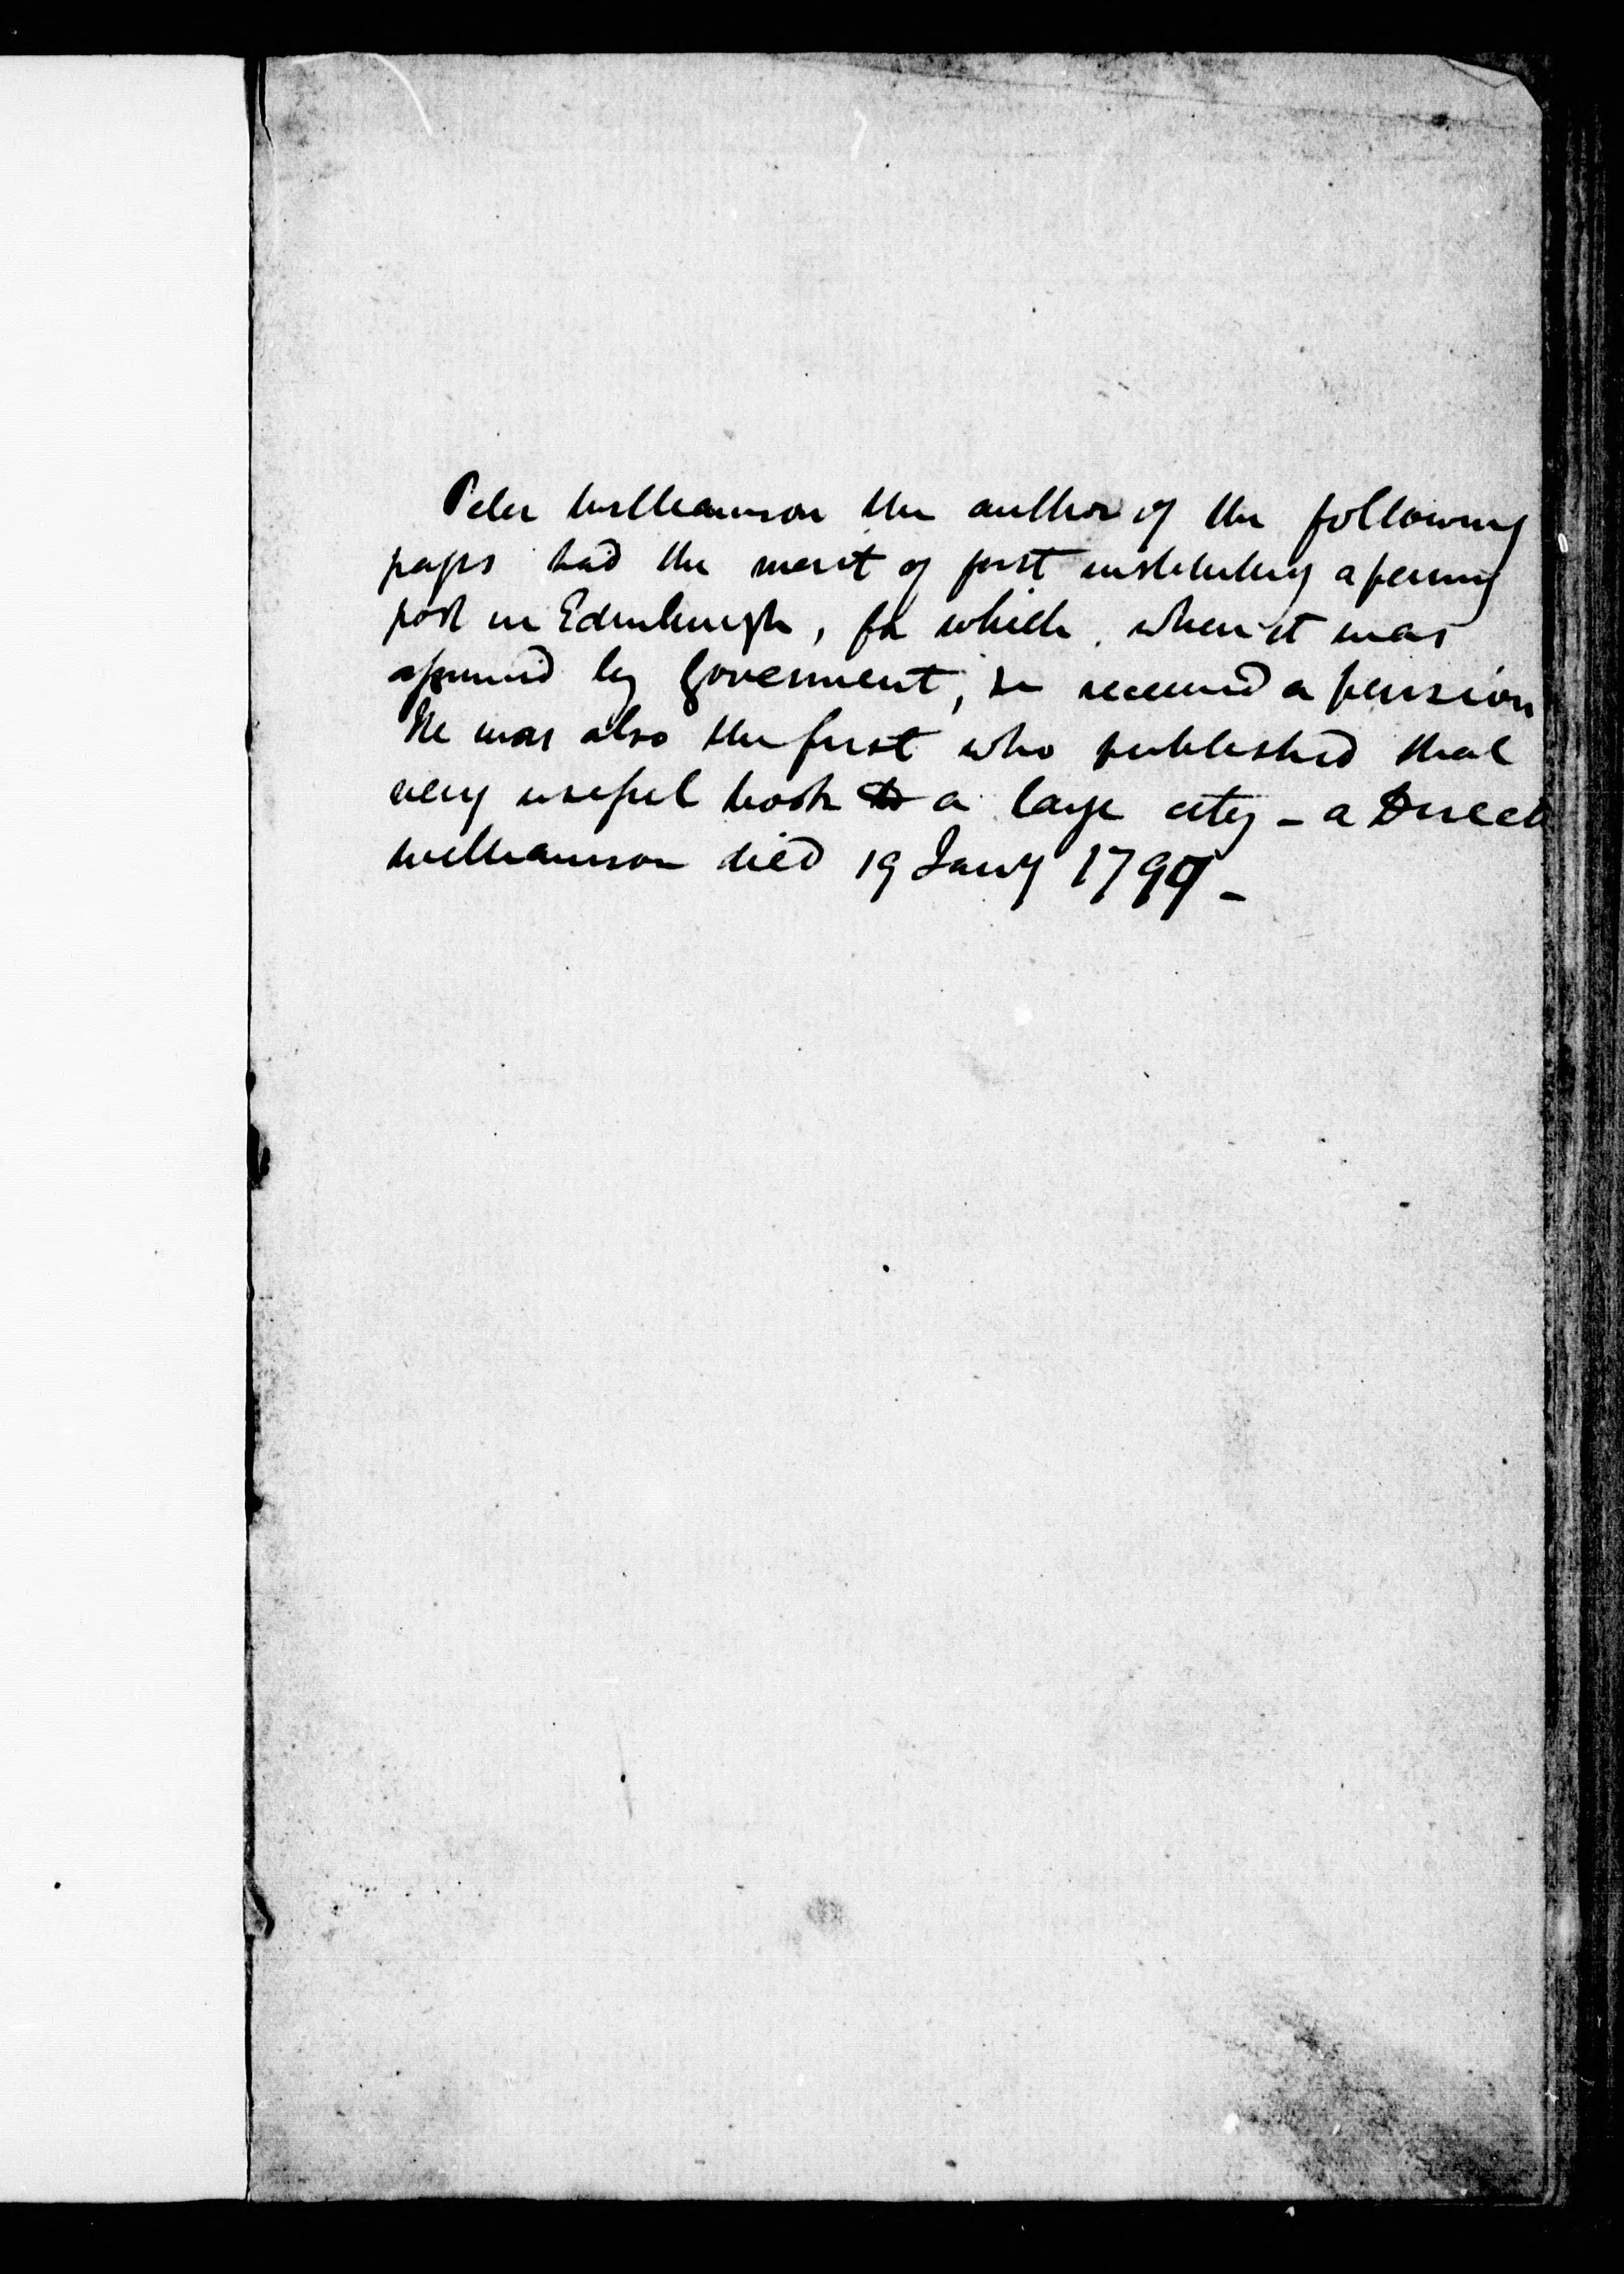 Peter Williamson the author of the following
pages had the merit of first instituting a penny
post in Edinburgh, for which when it was
assumed by Goverment, he received a pension
He was also the first who published that
very useful book to a large city – a Direct
Williamson died 19 Jany 1799 –